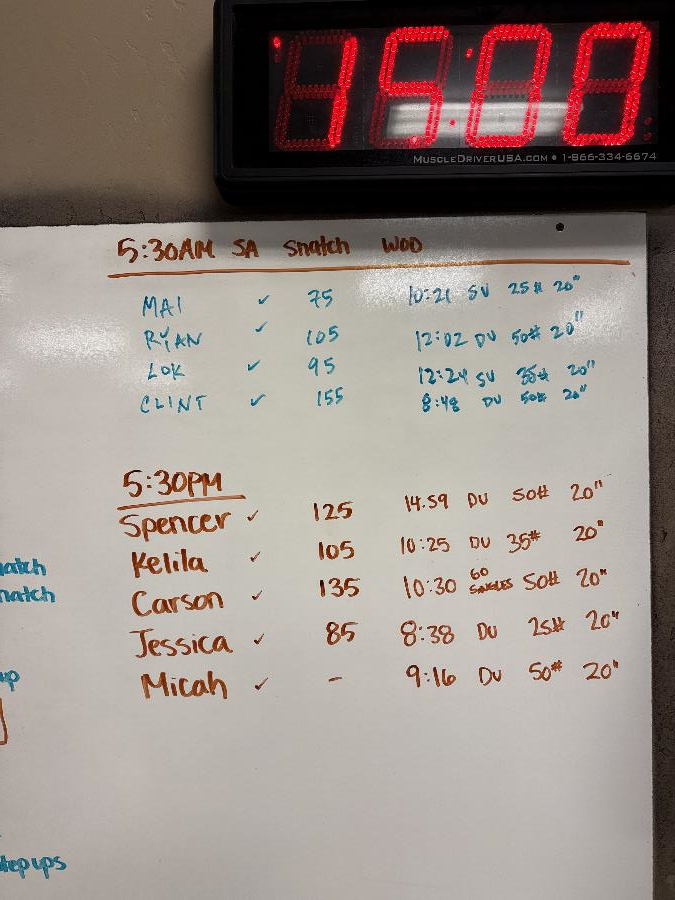 15:00
MUSCLEDRIVERUSA.COM • 1-866-334-6674
5:30AM SA Snatch WOD
MAI ✓ 75 10:21 SU 25# 20"
RYAN ✓ 105 12:02 DU 50# 20"
LOK ✓ 95 12:24 SU 35# 20"
CLINT ✓ 155 8:48 DU 50# 20"
5:30PM
Spencer ✓ 125 14:59 DU 50# 20"
Kelila ✓ 105 10:25 DU 35# 20"
Carson ✓ 135 10:30 60 SINGLES 50# 20"
Jessica ✓ 85 8:38 DU 25# 20"
Micah ✓ - 9:16 DU 50# 20"